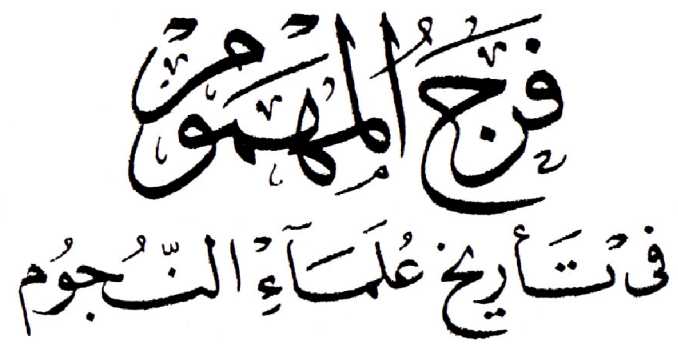 فَرَجُ الْمَهْمُومِ
فِي تَأْرِيخِ عُلَمَآءِ النُّجُومِ